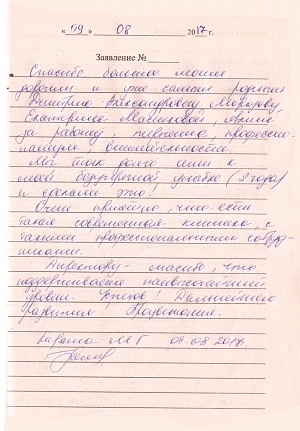 « 09 » 08 2017 г.
Заявление №
Спасибо большое моим
дорогим и уже самым родным
Дмитрию Александровичу Морозову,
Екатерине Маниковой, Арине
за работу, терпение, профессио-
нализм, внимательность.
Мы так долго шли к
моей безупречной улыбке (2 года)
и сделали это!
Очень приятно, что есть
такая современная клиника, с
такими профессиональными сотруд-
никами.
Директору - спасибо, что
поддерживаете наивысочайший
уровень. Дальнейшего
Развития Процветания.
МГ 09.08.2017г.